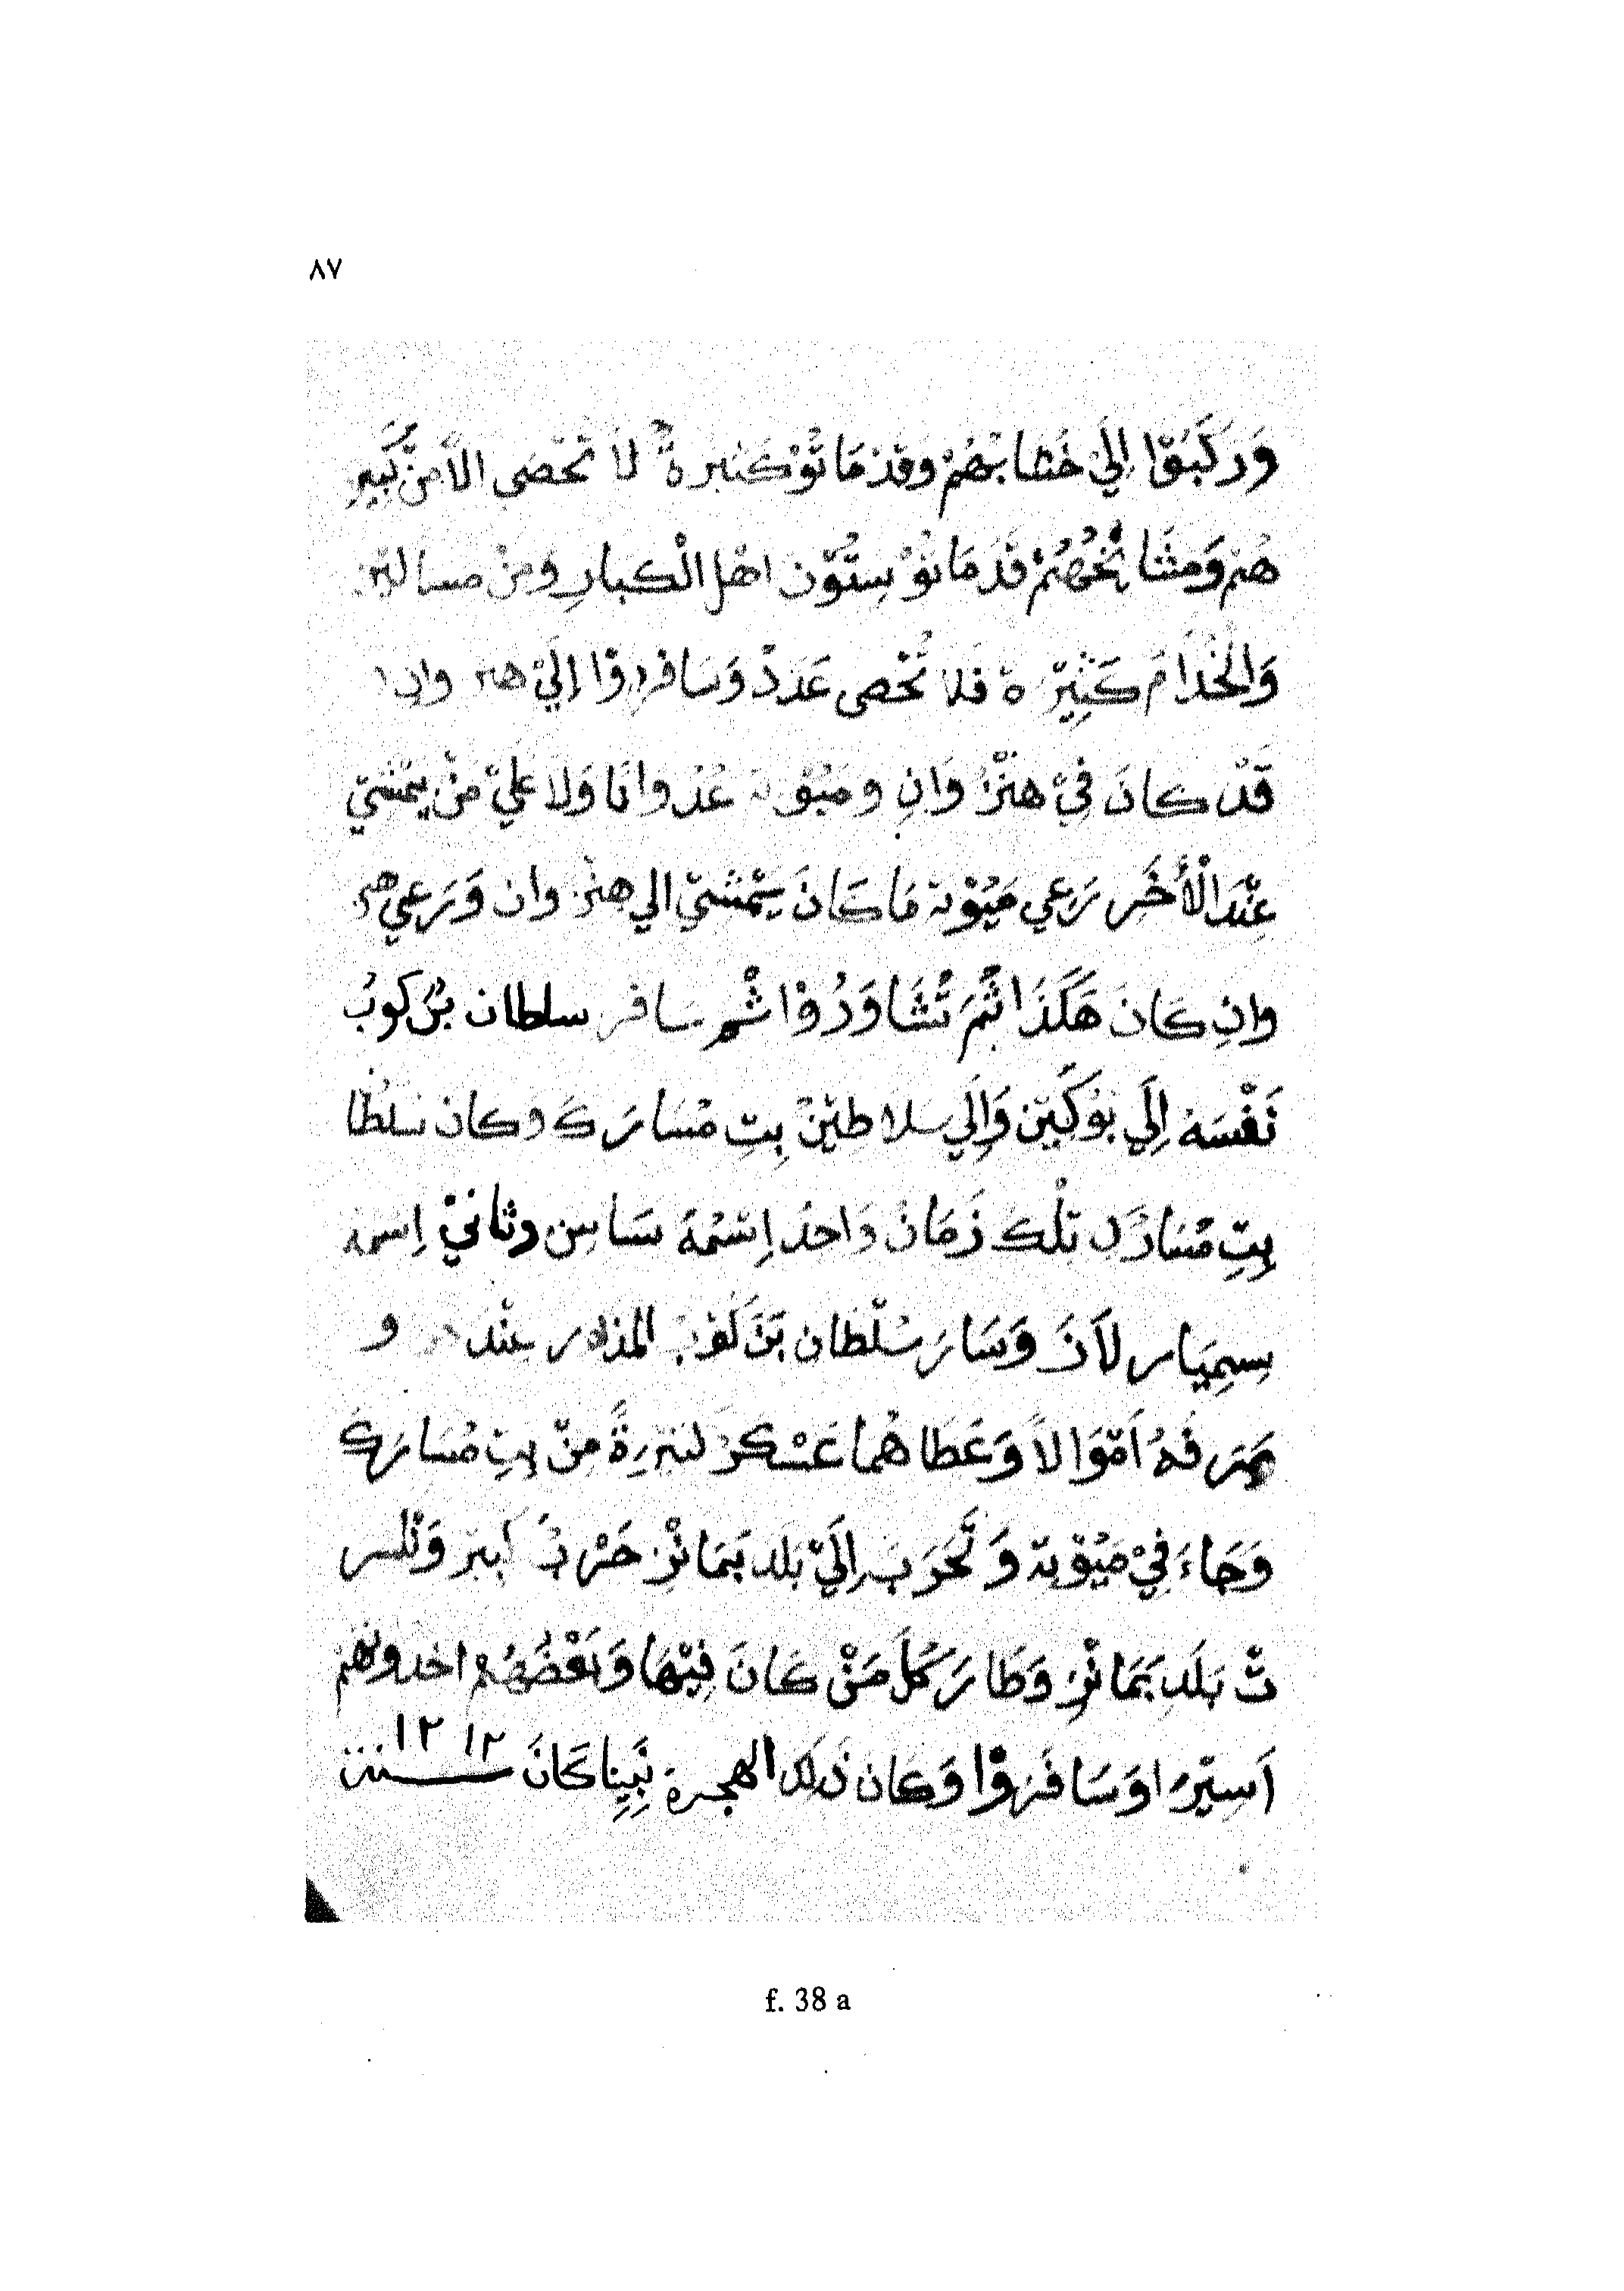 ٨٧
وَرَكَبُوْا إِلَيْ خَشَابَهُمْ وقد مَا تُوْ كثيرة لَا تُحْصَى الاَّ مِنْ كَبِيرِ
هُمْ وَمَشَائِخُهُمْ قَدْ مَا تُوْ سِتُّوْنَ اهْل الْكبارِ وَمِنْ مساكين
وَالْخُدَّامَ كَثِيْرَة فلا تُحْصى عَدَدْ وَسَافروْا إِلَيْ هنز وانِ
قَدْ كانَ فِيْ هِنْزُ وَانِ و مَيُوْتة عُدْوانًا وَلَا عَلَيْ مَنْ يَمْشِيْ
عِنْدَ الْأُخَر رَعِي مَيُوْتة مَا كَانَ يَمْشِيْ الي هنز وان وَرَعِي هنز
وانِ كَانَ هَكَذَا ثُمَّ تَشَاوَرُوْا ثُم سَافر سلطان بْنُ كوبُ
نَفْسَهُ إِلَي بُوْكِيْن وَإِلَي سلاطِيْنْ بِتِ مْسَارَكَ وكان سلطا
بِتِ مْسَارَكِ تِلْكَ زَمَانْ وَاحدْ إِسْمُهُ سَاسِن وثانيْ إِسمه
سِمِيَار لَانَ وَسَارَ سُلْطان بَنَكُوبُ المذكور عِنْد و
صَرَفَهُ أَمْوَالاً وَعَطَا هُمَا عَسْكَرْ كثيرةً مِنْ بِتِ مْسَارَكَ
وَجَاءَ فِيْ مَيُوْتة وَتَحَرَبَ إِلَيْ بَلَد بَمَانْزِ حَرْبٌ كبير وَنْكسر
تْ بَلَدِ بَمَانْزِ وَطَارَ كُلُّ مَنْ كَانَ فِيْهَا وَبَعْضُهُمْ اخذوهُمْ
أَسِيْرًا وَسَافَرُوْا وَكَان ذَلِكَ الهجرة نَبِيِنا كَانَ سنة ١٢١٢
f. 38 a